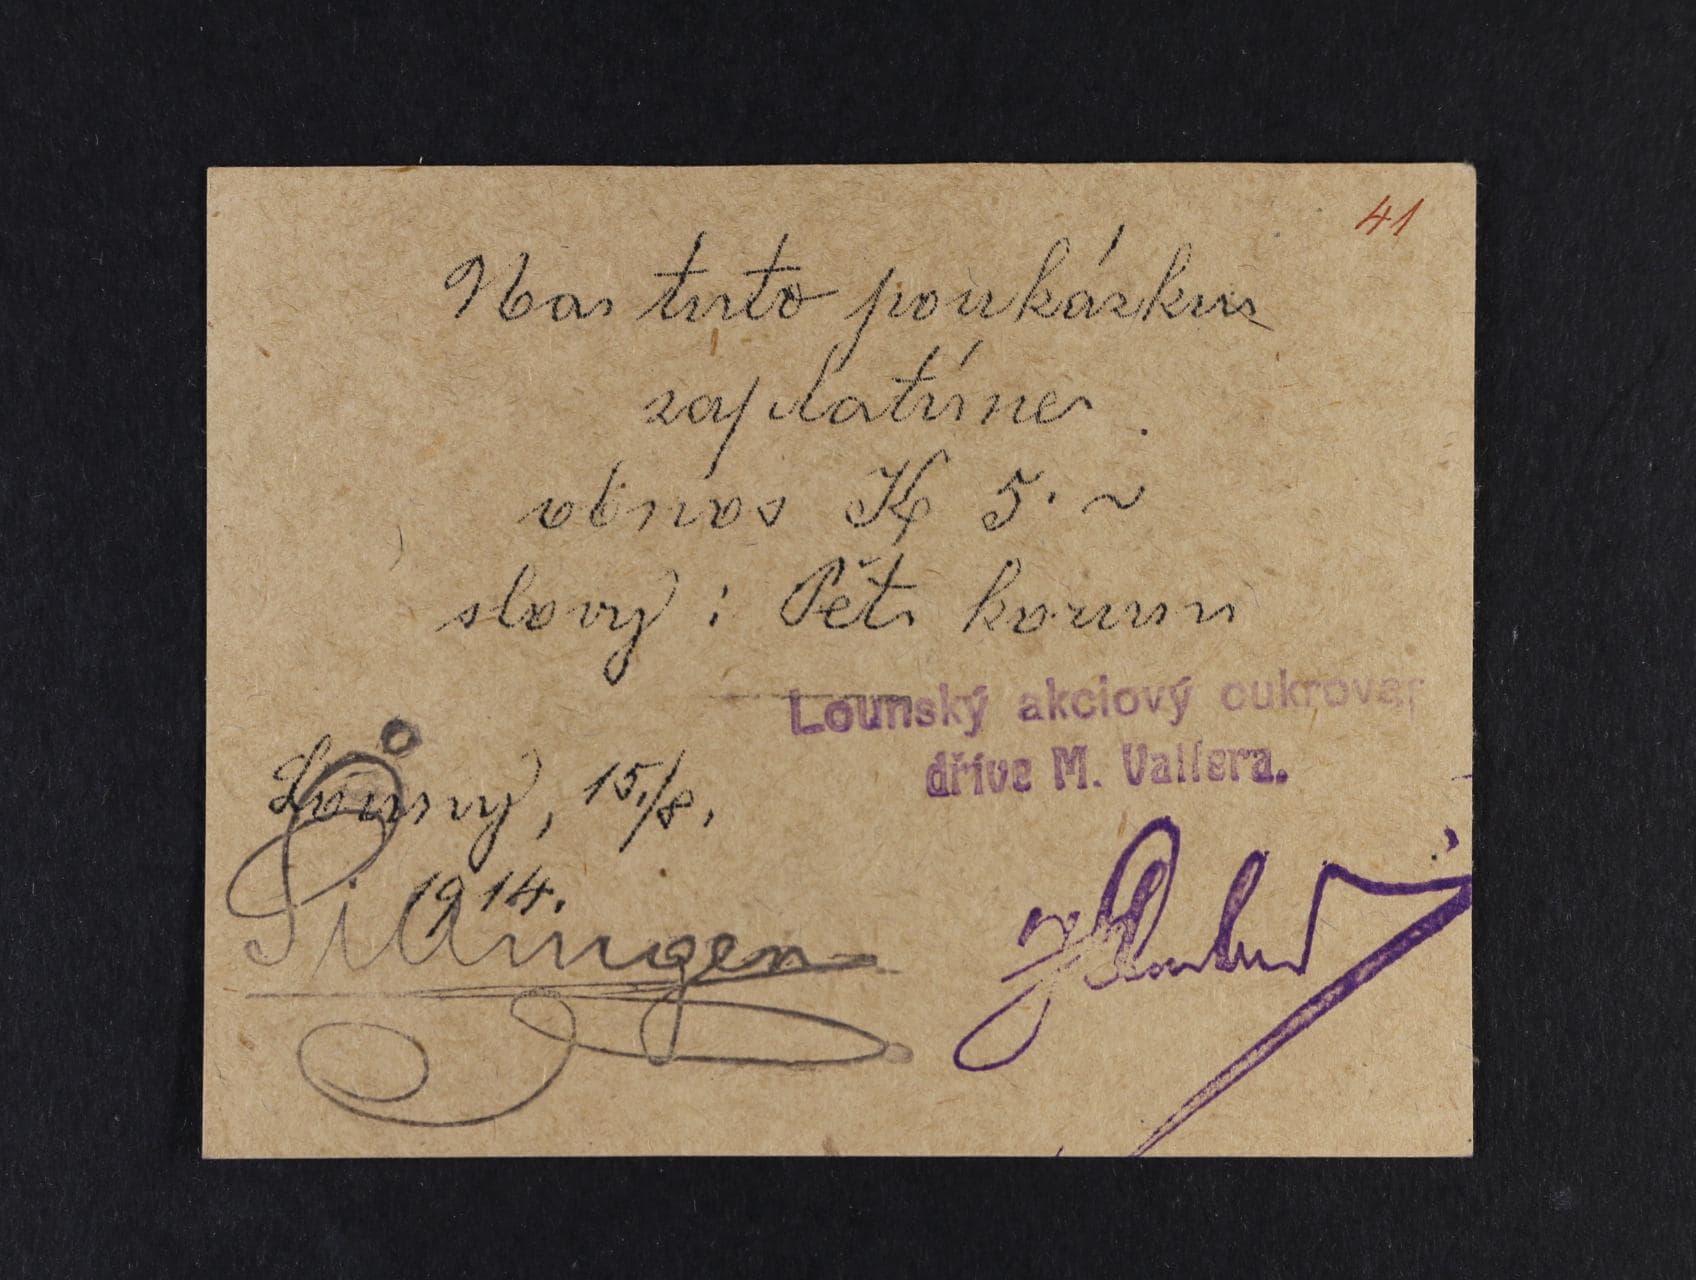 41
Na tuto poukázku
zaplatíme
obnos K 5.~
slovy: Pět korun
Lounský akciový cukrovar
dříve M. Valtera.
Louny, 15./8.
1914.